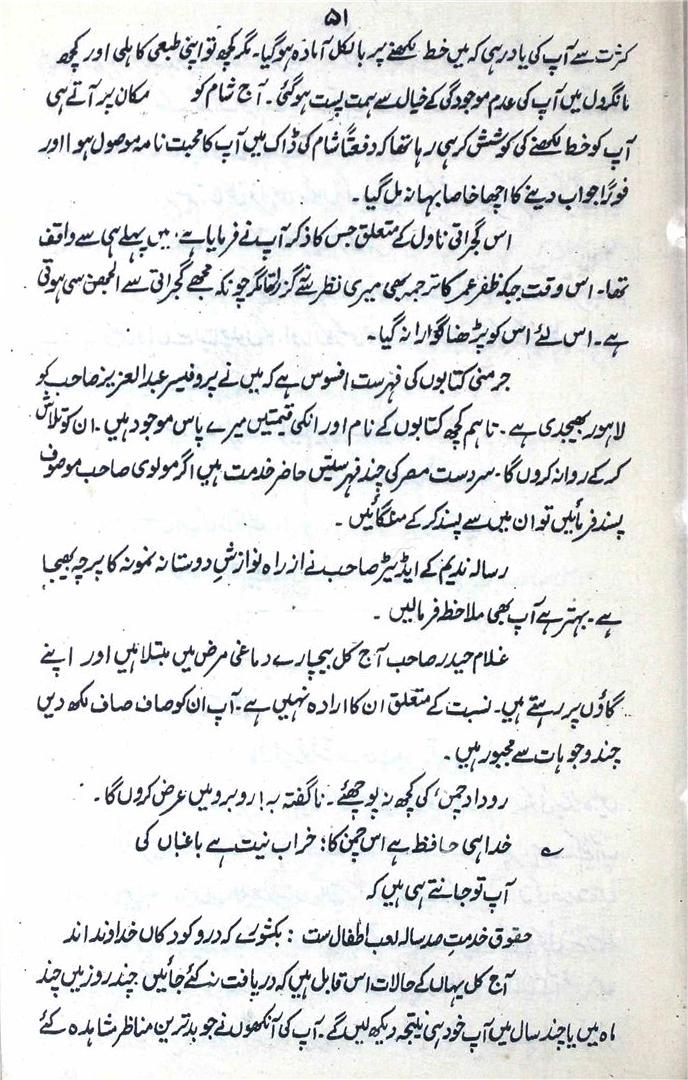 ۵۱
کثرت سے آپ کی یاد رہی کہ میں خط لکھنے پر بالکل آمادہ ہوگیا۔ مگر کچھ تو اپنی طبعی کاہلی اور کچھ
مانگرول میں آپ کی عدم موجودگی کے خیال سے ہمت پست ہوگئی۔ آج شام کو مکان پر آتے ہی
آپ کو خط لکھنے کی کوشش کر ہی رہا تھا کہ دفعتاً شام کی ڈاک میں آپ کا محبت نامہ موصول ہوا اور
فوراً جواب دینے کا اچھا خاصا بہانہ مل گیا۔
اس گجراتی ناول کے متعلق جس کا ذکر آپ نے فرمایا ہے، میں پہلے ہی سے واقف
تھا۔ اس وقت جبکہ ظفر عمر کا ترجمہ بھی میری نظر سے گزرا تھا مگر چونکہ مجھے گجراتی سے الجھن سی ہوتی
ہے۔ اس لئے اس کو پڑھنا گوارا نہ گیا۔
جرمنی کتابوں کی فہرست افسوس ہے کہ میں نے پروفیسر عبدالعزیز صاحب کو
لاہور بھیجدی ہے۔ تاہم کچھ کتابوں کے نام اور انکی قیمتیں میرے پاس موجود ہیں۔ ان کو تلاش
کر کے روانہ کروں گا۔ سردست مصر کی چند فہرستیں حاضر خدمت ہیں اگر مولوی صاحب موصوف
پسند فرمائیں تو ان میں سے پسند کر کے منگائیں۔
رسالہ ندیم کے ایڈیٹر صاحب نے از راہ نوازشِ دوستانہ نمونہ کا پرچہ بھیجا
ہے۔ بہتر ہے آپ بھی ملاحظہ فرمالیں۔
غلام حیدر صاحب آج کل بیچارے دماغی مرض میں مبتلا ہیں اور اپنے
گاؤں پر رہتے ہیں۔ نسبت کے متعلق ان کا ارادہ نہیں ہے۔ آپ ان کو صاف صاف لکھ دیں
چند وجوہات سے مجبور ہیں۔
روداد چمن، کی کچھ نہ پوچھئے۔ ناگفتہ بہ! روبرو میں عرض کروں گا۔
؎ خدا ہی حافظ ہے اس چمن کا؛ خراب نیت ہے باغباں کی
آپ تو جانتے ہی ہیں کہ
حقوق خدمتِ صد سالہ لعب اطفال ست : بکشورے کہ در و کودکاں خداوند اند
آج کل یہاں کے حالات اس قابل ہیں کہ دریافت نہ کئے جائیں چند روز میں چند
ماہ میں یا چند سال میں آپ خود ہی نتیجہ دیکھ لیں گے۔ آپ کی آنکھوں نے جو بدترین مناظر مشاہدہ کئے